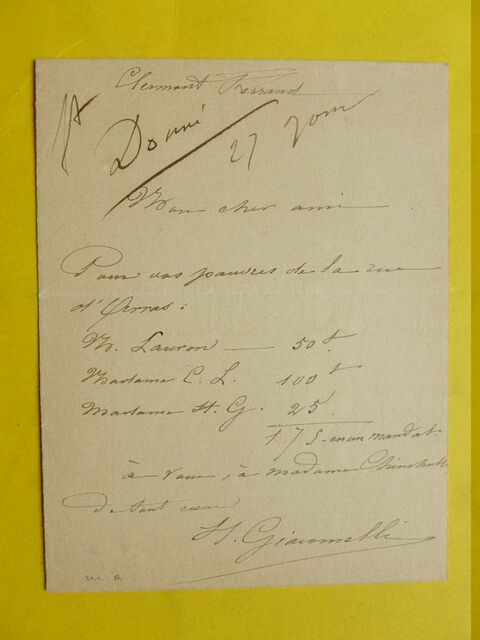 Clermont Ferrand
Donné
27
Mon cher ami
Pour vos pauvres de la rue
d'Arras :
M. Lauron — 50 f.
Madame C. L. 100 f
Madame H. G. 25
175 - en un mandat
à vous, à madame
de tout cœur
H. Giacomelli
m a